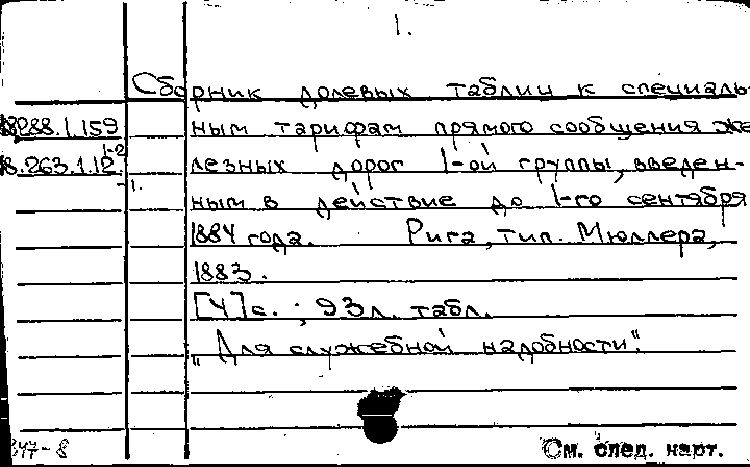 1.
Сборник долевых таблиц к специаль-
288.1.159 ным тарифам прямого сообщения же-
18.263.1.12 1-2 лезных дорог 1-ой группы, введен-
ным в действие до 1-го сентября
1884 года. Рига, тип. Мюллера,
1883.
[4] с.; 93 л. табл.
„Для служебной надобности".
347-8 См. след. карт.